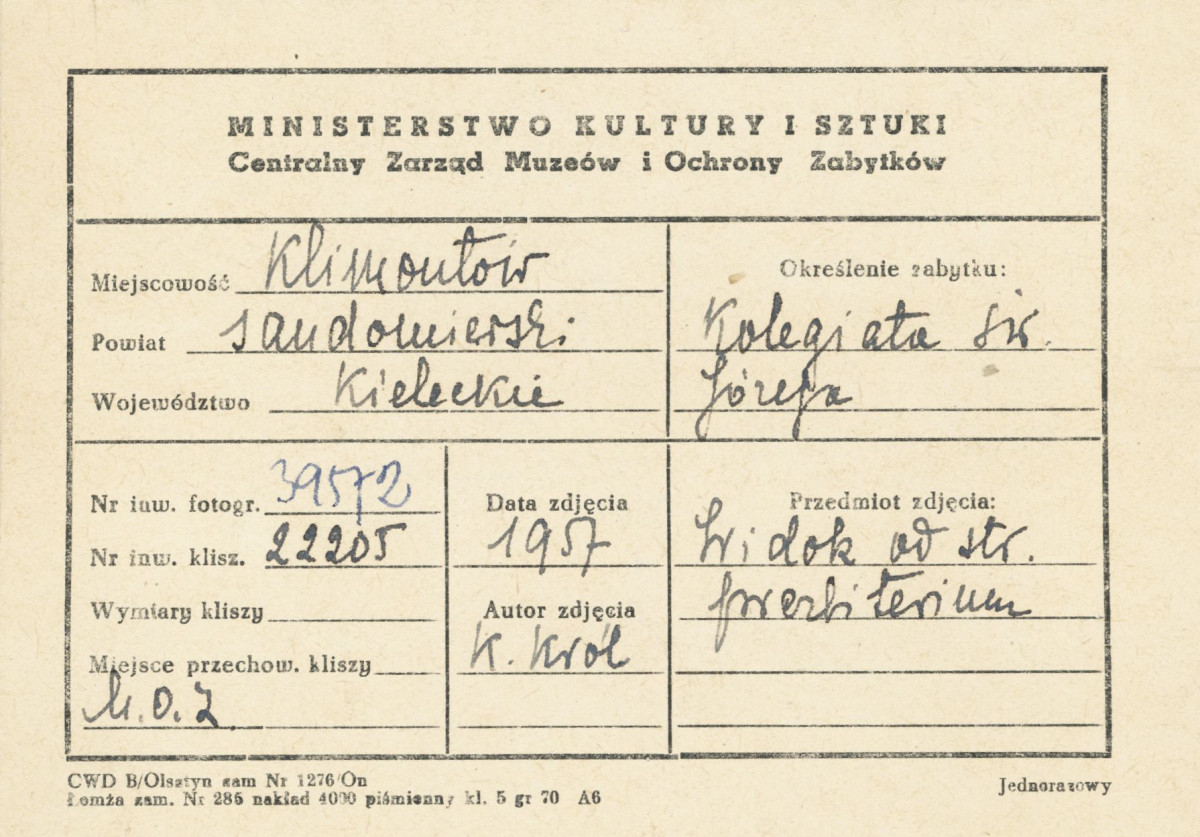 MINISTERSTWO KULTURY I SZTUKI
Centralny Zarząd Muzeów i Ochrony Zabytków
Miejscowość Klimontów
Powiat sandomierski
Województwo Kieleckie
Określenie zabytku:
Kolegiata św.
Józefa
Nr inw. fotogr. 39572
Nr inw. klisz. 22205
Wymiary kliszy
Miejsce przechow. kliszy
M.O.Z.
Data zdjęcia
1957
Autor zdjęcia
K. Król
Przedmiot zdjęcia:
Widok od str.
prezbiterium
CWD B/Olsztyn zam Nr 1276/On
Łomża zam. Nr 286 nakład 4000 piśmienny kl. 5 gr 70 A6
Jednorazowy